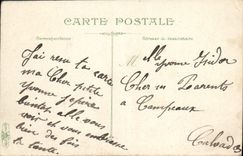 CARTE POSTALE
Correspondance
Adresse du destinataire
J'ai reçu ta carte
ma Cher petite
Yvonne j'espère
voir et vous embrasse
bien de
ta tante
Mlle
Yvonne Isidor
Cher ses Parents
à Campeaux
Calvados